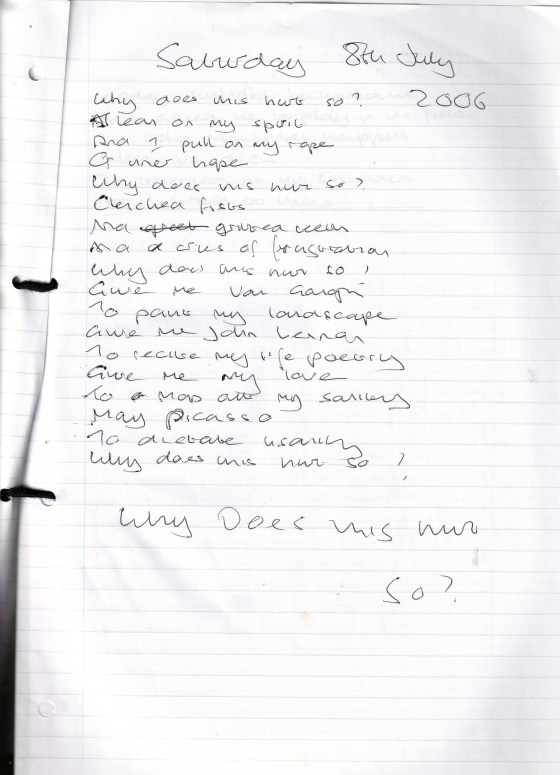 Saturday 8th July
2006
Why does this hurt so?
A tear on my spirit
And I pull on my rope
Of inner hope
Why does this hurt so?
Clenched fists
And gritted teeth
And cries of frustration
Why does this hurt so?
Give me Van Gough
To paint my landscape
Give me John Lennon
To recite my life poetry
Give me my love
To map out my sanity
May Picasso
To dictate
Why does this hurt so?
Why Does this hurt
so?